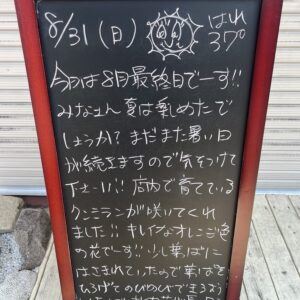 8/31(日) はれ
37°
今日は8月最終日でーす!!
みなさん夏は楽しめたで
しょうか? まだまだ暑い日
が続きますので気をつけて
下さーい!! 店内で育てている
クンシランが咲いてくれ
ました!! キレイなオレンジ色
の花でーす!! 少し葉っぱに
はさまれていたので葉っぱを